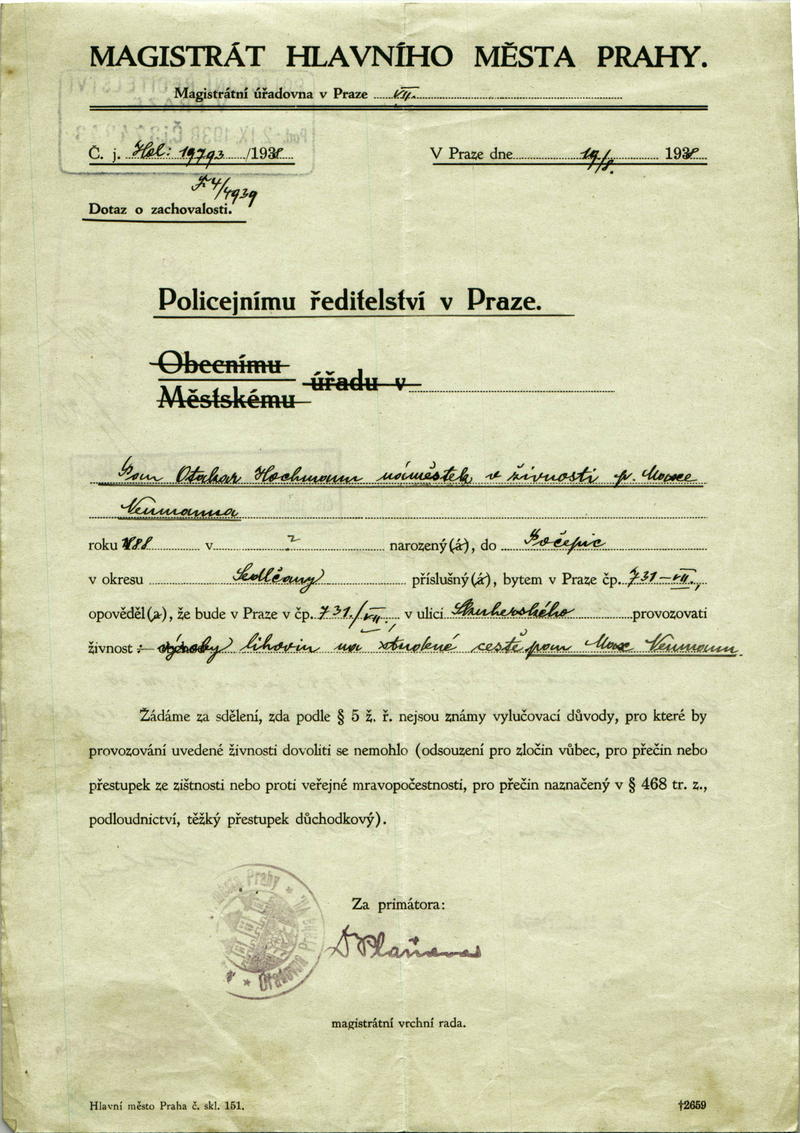 MAGISTRÁT HLAVNÍHO MĚSTA PRAHY.
Magistrátní úřadovna v Praze VII.
Č. j. Hol: 19793 /1938
V Praze dne 19/8. 1938
4/1939
Dotaz o zachovalosti.
Policejnímu ředitelství v Praze.
Obecnímu
Městskému úřadu v
Pan Otakar Hochmann náměstek v živnosti p. Maxe
Neumanna
roku 888 v ? narozený(á), do Počepic
v okresu Sedlčany příslušný(á), bytem v Praze čp. 731-VII.,
opověděl(a), že bude v Praze v čp. 731/VII., v ulici Skuherského provozovati
živnost: výroby lihovin na studené cestě pan Max Neumann.
Žádáme za sdělení, zda podle § 5 ž. ř. nejsou známy vylučovací důvody, pro které by
provozování uvedené živnosti dovoliti se nemohlo (odsouzení pro zločin vůbec, pro přečin nebo
přestupek ze zištnosti nebo proti veřejné mravopočestnosti, pro přečin naznačený v § 468 tr. z.,
podloudnictví, těžký přestupek důchodkový).
Za primátora:
magistrátní vrchní rada.
Hlavní město Praha č. skl. 151.
†2659